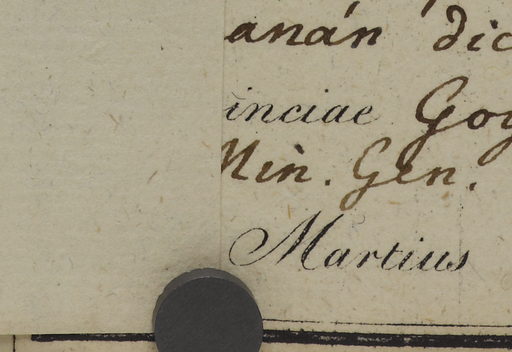 anán dic
inciae Goy
Min. Gen.
Martius